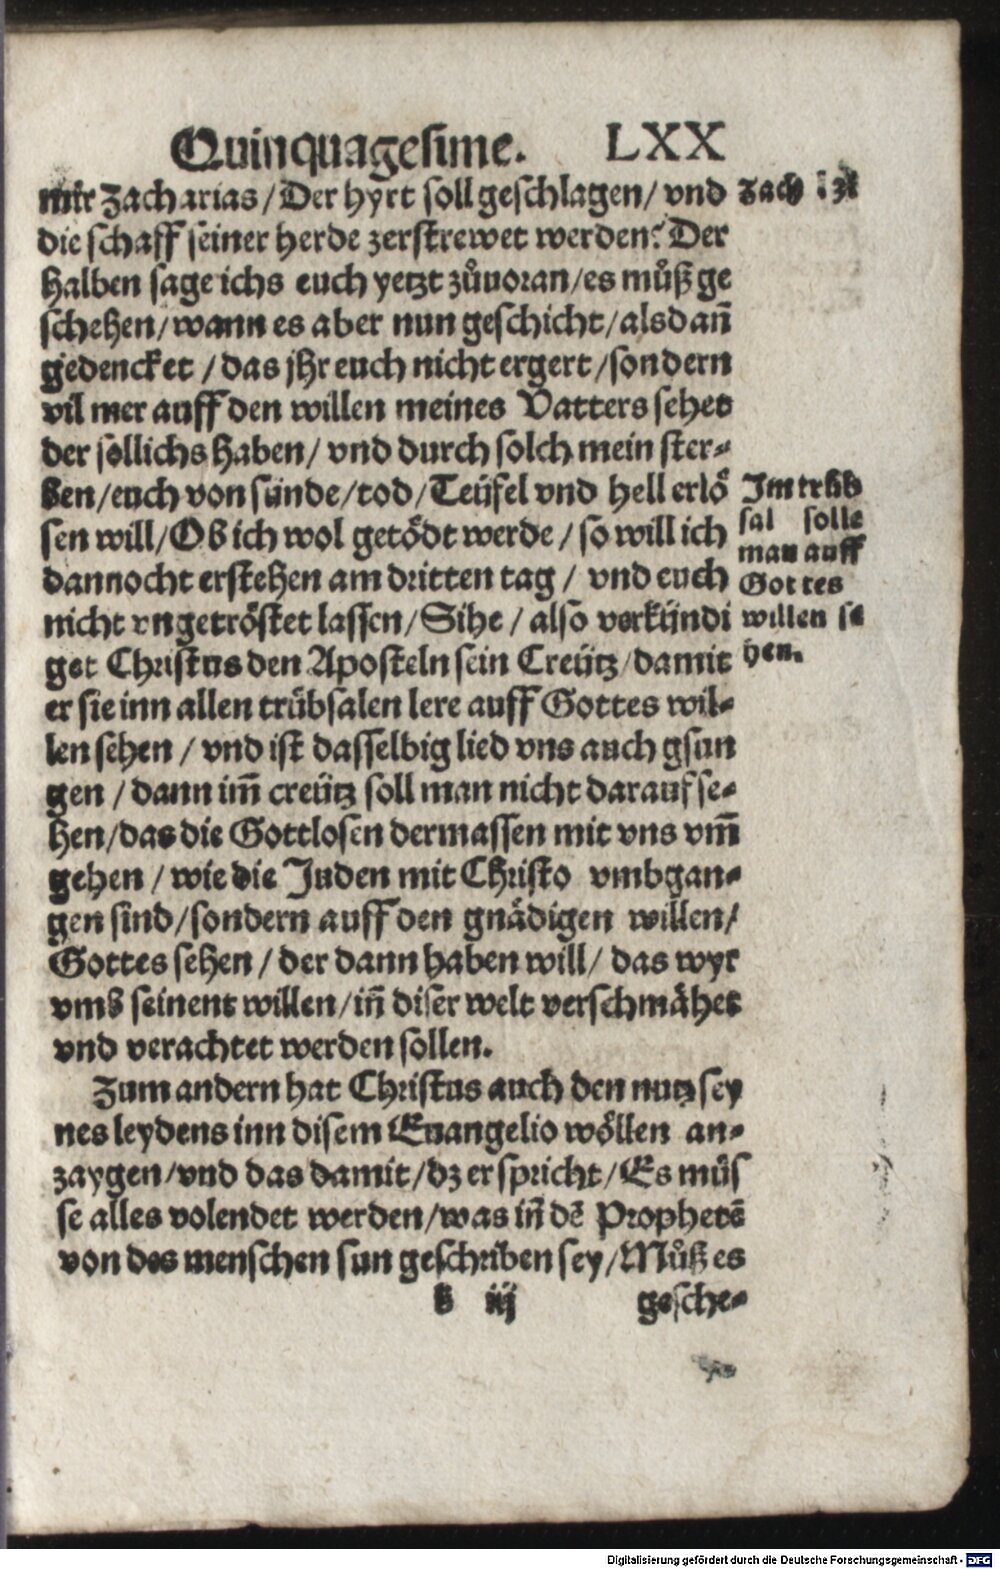 Quinquagesime. LXX
mir Zacharias / Der hyrt soll geschlagen / vnd
die schaff seiner herde zerstrewet werden? Der
halben sage ichs euch yetzt zůuoran / es můß ge
schehen / wann es aber nun geschicht / alsdañ
gedencket / das jhr euch nicht ergert / sondern
vil mer auff den willen meines Vatters sehet
der sollichs haben / vnd durch solch mein ster-
ben / euch von sünde / tod / Teüfel vnd hell erlö
sen will / Ob ich wol getödt werde / so will ich
dannocht erstehen am dritten tag / vnd euch
nicht vngetröstet lassen / Sihe / also verkündi
get Christus den Aposteln sein Creütz / damit
er sie inn allen trübsalen lere auff Gottes wil-
len sehen / vnd ist dasselbig lied vns auch gsun
gen / dann im̃ creütz soll man nicht darauf se-
hen / das die Gottlosen dermassen mit vns vm̃
gehen / wie die Juden mit Christo vmbgan-
gen sind / sondern auff den gnädigen willen /
Gottes sehen / der dann haben will / das wyr
vmb seinent willen / iñ diser welt verschmähet
vnd verachtet werden sollen.
Zum andern hat Christus auch den nutz sey
nes leydens inn disem Euangelio wöllen an-
zaygen / vnd das damit / dz er spricht / Es můs
se alles volendet werden / was iñ dẽ Prophetẽ
von des menschen sun geschriben sey / Můß es
iij gesche-
Zach
Im trüb
sal soll-
man auff
Gottes
willen se
hen.
Digitalisierung gefördert durch die Deutsche Forschungsgemeinschaft - DFG